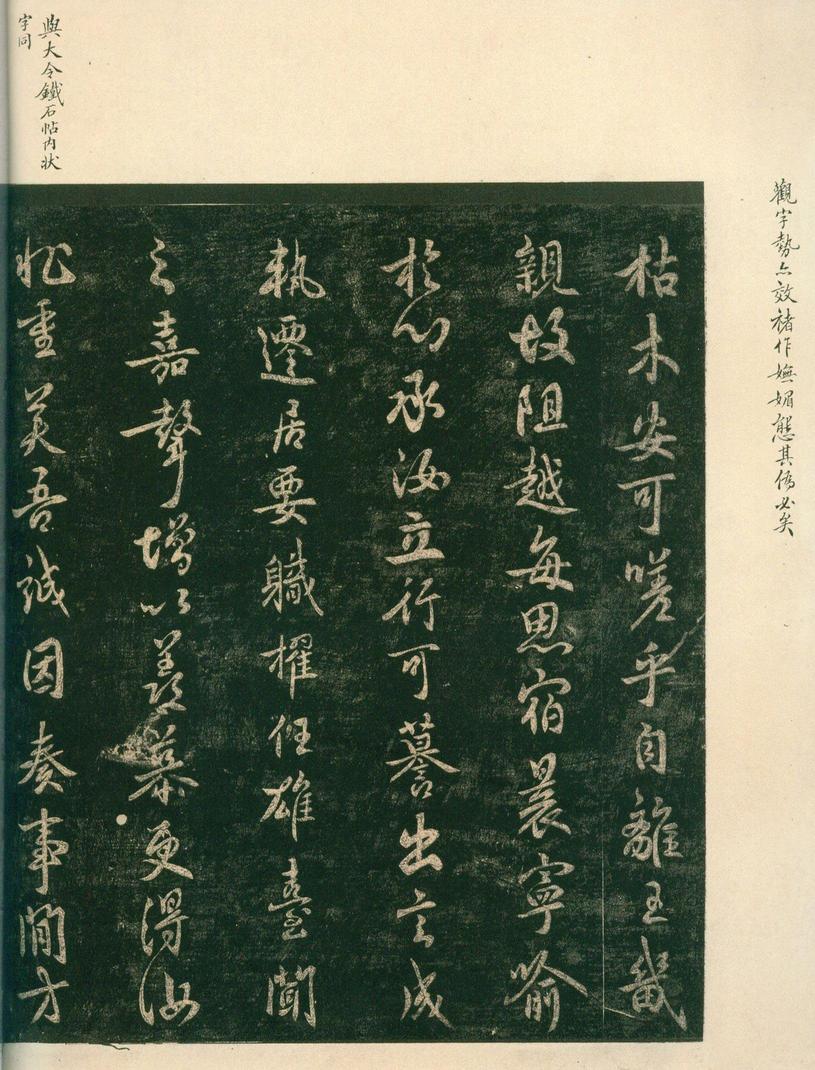 觀字勢亦效褚作嫵媚態其偽必矣
枯木安可嗟乎自離王畿
親故阻越每思宿晨寧喻
於心承汝立行可謩出言成
執遷居要職擢任雄臺聞
之嘉聲增以羨慕更得汝
狀重美吾誠因奏事間才
與大令鐵石帖內狀
字同